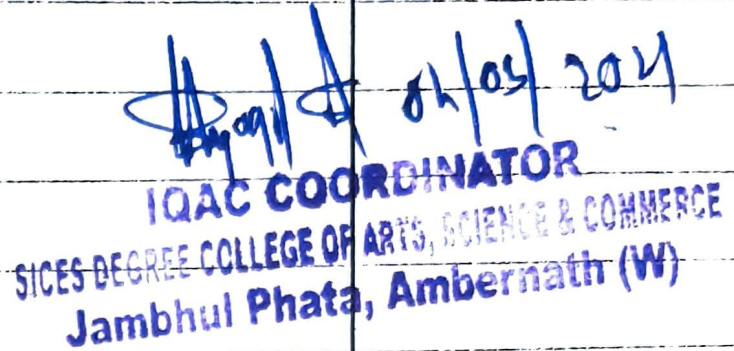 04/05/2021
IQAC COORDINATOR
SICES DEGREE COLLEGE OF ARTS, SCIENCE & COMMERCE
Jambhul Phata, Ambernath (W)